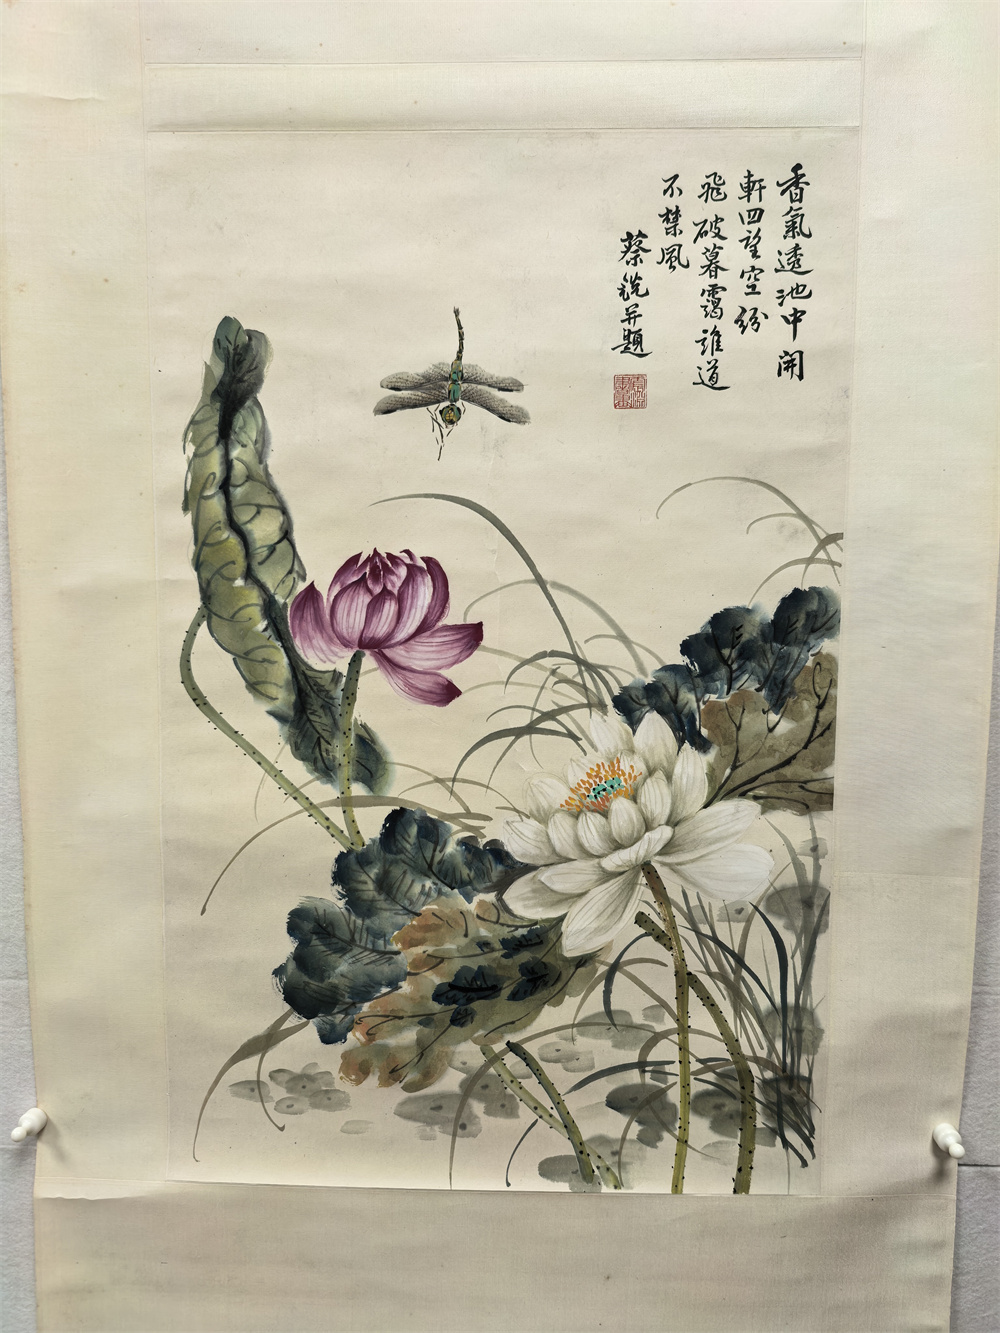 香氣透池中開
軒四望空紛
飛破暮靄誰道
不禁風
蔡銑并題